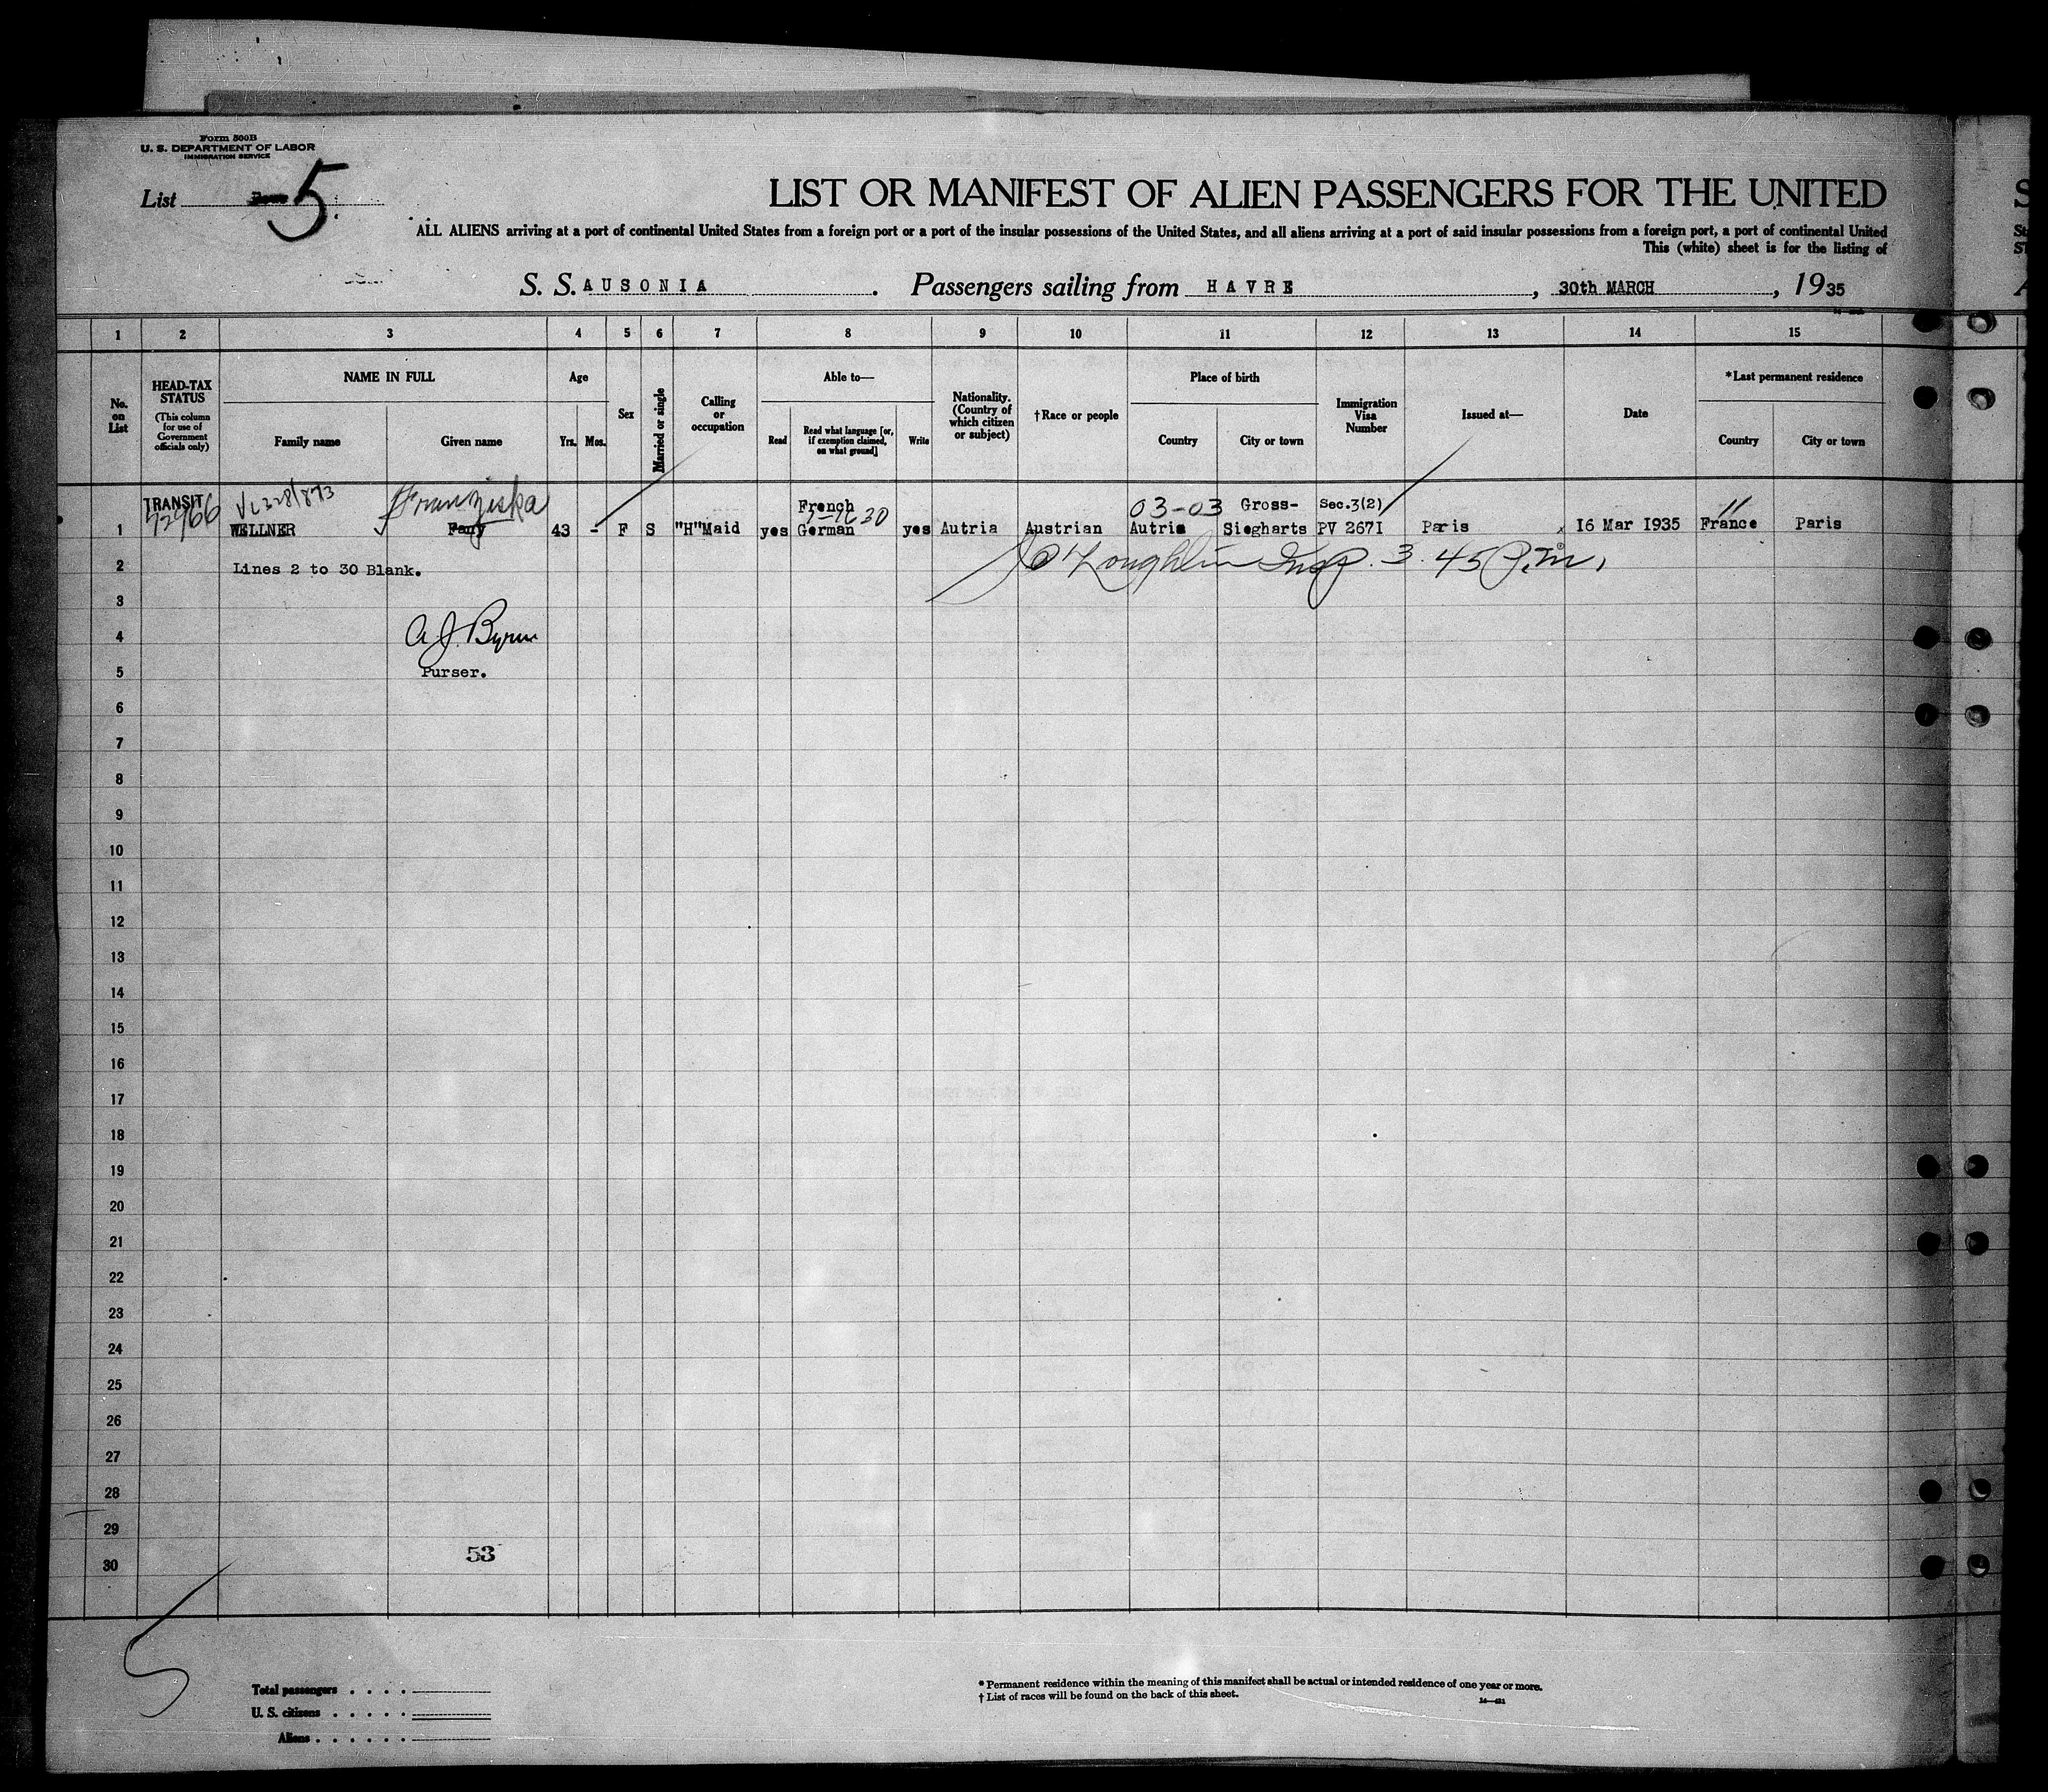 Form 500B
U. S. DEPARTMENT OF LABOR
IMMIGRATION SERVICE
List 5
LIST OR MANIFEST OF ALIEN PASSENGERS FOR THE UNITED
ALL ALIENS arriving at a port of continental United States from a foreign port or a port of the insular possessions of the United States, and all aliens arriving at a port of said insular possessions from a foreign port, a port of continental United
This (white) sheet is for the listing of
S. S. AUSONIA . Passengers sailing from HAVRE , 30th MARCH , 1935
1 2 3 4 5 6 7 8 9 10 11 12 13 14 15
No. on List
HEAD-TAX STATUS
(This column for use of Government officials only)
NAME IN FULL
Family name Given name
Age
Yrs. Mos.
Sex
Married or single
Calling or occupation
Able to—
Read
Read what language [or, if exemption claimed, on what ground]
Write
Nationality. (Country of which citizen or subject)
†Race or people
Place of birth
Country City or town
Immigration Visa Number
Issued at—
Date
*Last permanent residence
Country City or town
TRANSIT Franziska French 03-03 Gross- Sec.3(2)
1 WELLNER Fany 43 - F S "H"Maid yes German yes Autria Austrian Autria Siegharts PV 2671 Paris 16 Mar 1935 France Paris
2 Lines 2 to 30 Blank. O'Loughlin Insp. 3.45 P.m.
3
4 A. J. Byrne
5 Purser.
6
7
8
9
10
11
12
13
14
15
16
17
18
19
20
21
22
23
24
25
26
27
28
29
30
53
5
Total passengers
U. S. citizens
Aliens
* Permanent residence within the meaning of this manifest shall be actual or intended residence of one year or more.
† List of races will be found on the back of this sheet.